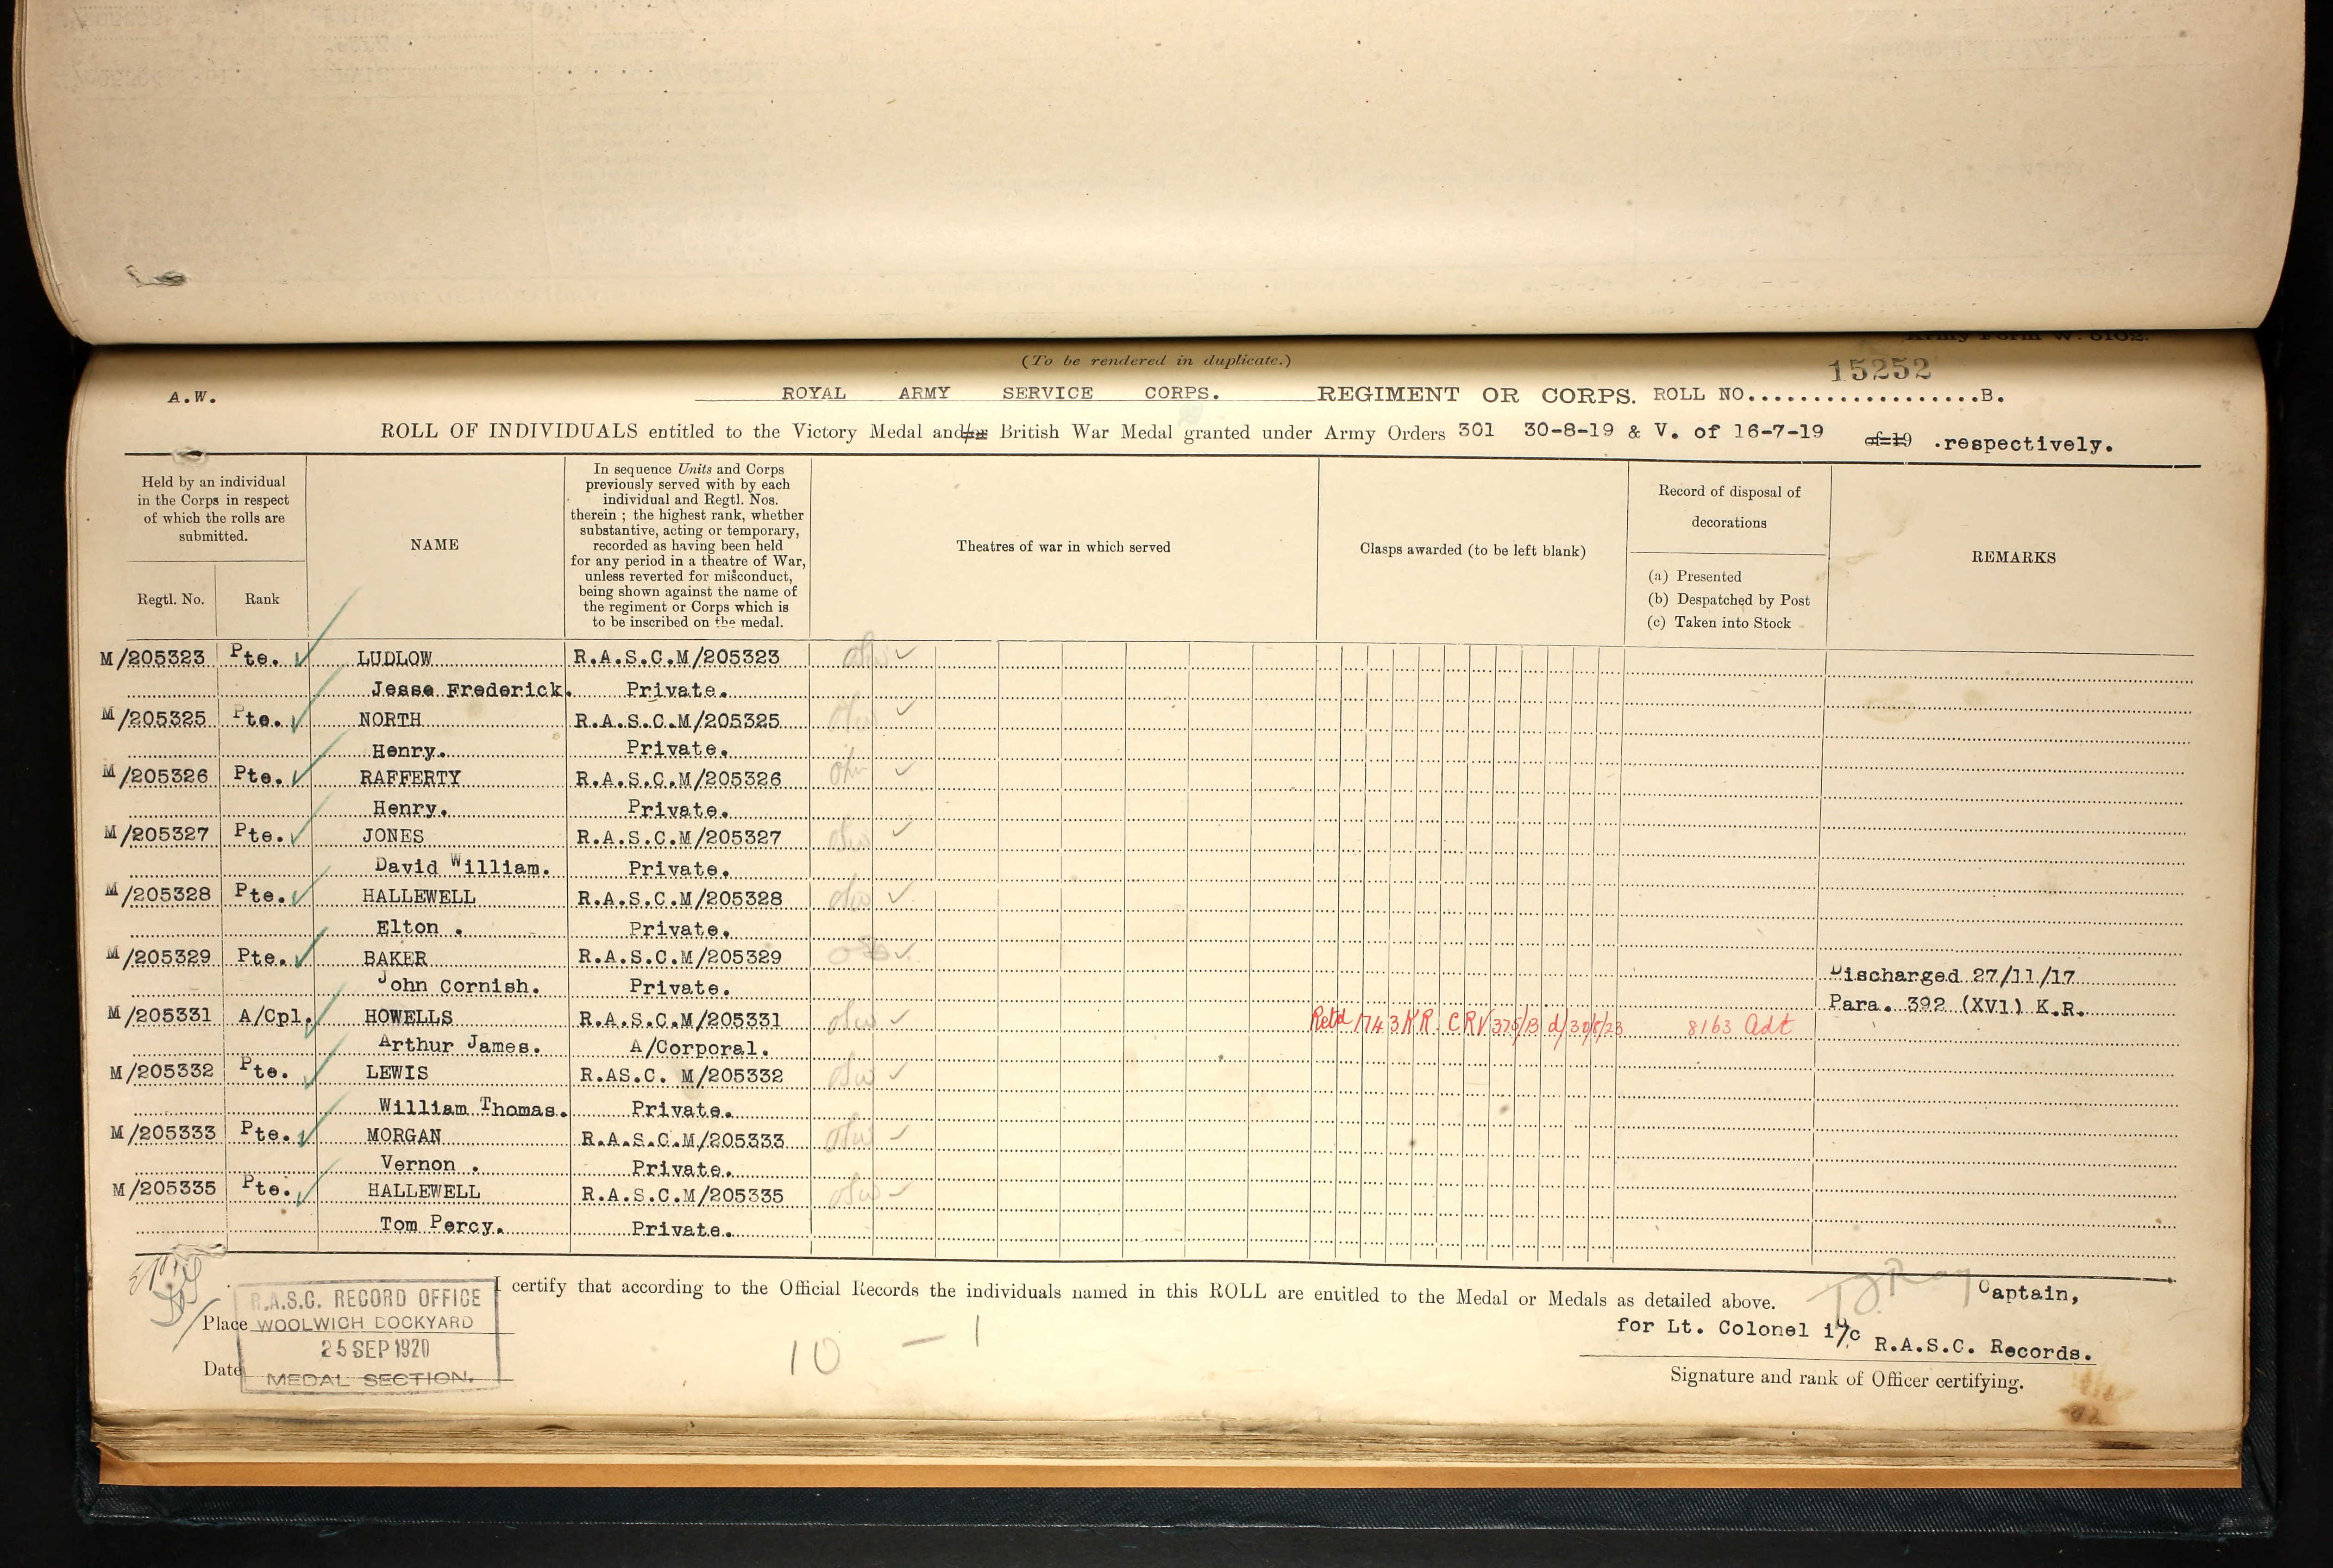 (To be rendered in duplicate.)
15252
A.W. ROYAL ARMY SERVICE CORPS. REGIMENT OR CORPS. ROLL NO...................B.
ROLL OF INDIVIDUALS entitled to the Victory Medal and/or British War Medal granted under Army Orders 301 30-8-19 & V. of 16-7-19 of 19 .respectively.
Held by an individual
in the Corps in respect
of which the rolls are
submitted.
Regtl. No.
Rank
NAME
In sequence Units and Corps
previously served with by each
individual and Regtl. Nos.
therein ; the highest rank, whether
substantive, acting or temporary,
recorded as having been held
for any period in a theatre of War,
unless reverted for misconduct,
being shown against the name of
the regiment or Corps which is
to be inscribed on the medal.
Theatres of war in which served
Clasps awarded (to be left blank)
Record of disposal of
decorations
(a) Presented
(b) Despatched by Post
(c) Taken into Stock
REMARKS
M/205323 Pte. LUDLOW R.A.S.C.M/205323
Jesse Frederick. Private.
M/205325 Pte. NORTH R.A.S.C.M/205325
Henry. Private.
M/205326 Pte. RAFFERTY R.A.S.C.M/205326
Henry. Private.
M/205327 Pte. JONES R.A.S.C.M/205327
David William. Private.
M/205328 Pte. HALLEWELL R.A.S.C.M/205328
Elton . Private.
M/205329 Pte. BAKER R.A.S.C.M/205329 Discharged 27/11/17
John Cornish. Private. Para. 392 (XVl) K.R.
M/205331 A/Cpl. HOWELLS R.A.S.C.M/205331 Retd 1743 KR. CRV 375/13 d/30/8/23 8163 Adt
Arthur James. A/Corporal.
M/205332 Pte. LEWIS R.AS.C. M/205332
William Thomas. Private.
M/205333 Pte. MORGAN R.A.S.C.M/205333
Vernon . Private.
M/205335 Pte. HALLEWELL R.A.S.C.M/205335
Tom Percy. Private.
I certify that according to the Official Records the individuals named in this ROLL are entitled to the Medal or Medals as detailed above.
Captain,
for Lt. Colonel i/c R.A.S.C. Records.
Signature and rank of Officer certifying.
R.A.S.C. RECORD OFFICE
Place WOOLWICH DOCKYARD
25 SEP 1920
Date MEDAL SECTION.
10 - 1